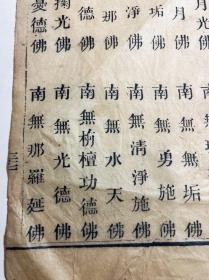 月光佛　南無無垢佛
垢佛　南無勇施佛
淨佛　南無清淨施佛
那佛　南無水天佛
德佛　南無栴檀功德佛
掬光佛　南無光德佛
憂德佛　南無那羅延佛